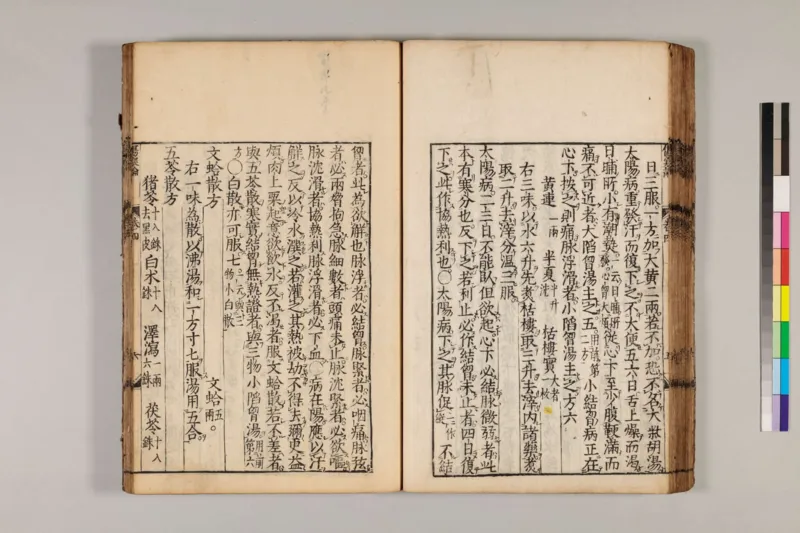 日三服一方加大黃二兩若不加恐不名大茈胡湯
太陽病重發汗而復下之不大便五六日舌上燥而渴
日晡所小有潮熱一云日晡所發心胷大煩從心下至少腹鞕滿而
痛不可近者大陷胷湯主之五用前第二方小結胷病正在
心下按之則痛脉浮滑者小陷胷湯主之方六
黃連一兩 半夏半升洗 栝樓實大者一枚
右三味以水六升先煑栝樓取三升去滓內諸藥煑
取二升去滓分溫三服
太陽病二三日不能臥但欲起心下必結脉微弱者此
本有寒分也反下之若利止必作結胷未止者四日復
下之此作協熱利也○太陽病下之其脉促一作縱不結
胷者此為欲解也脉浮者必結胷脉緊者必咽痛脉弦
者必兩脅拘急脉細數者頭痛未止脉沈緊者必欲嘔
脉沈滑者協熱利脉浮滑者必下血○病在陽應以汗
解之反以冷水潠之若灌之其熱被劫不得去彌更益
煩肉上粟起意欲飲水反不渴者服文蛤散若不差者
與五苓散寒實結胷無熱證者與三物小陷胷湯用前第六
方○白散亦可服七一云與三物小白散
文蛤散方
文蛤五兩
右一味為散以沸湯和一方寸匕服湯用五合
五苓散方
猪苓十八銖去黑皮 白朮十八銖 澤瀉一兩六銖 茯苓十八銖